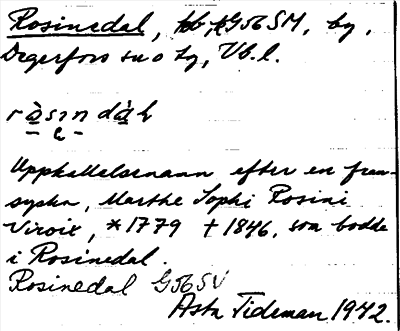 Rosinedal, G56SM, by,
Degerfors sn o Lg, Vb.l.
ràsın dàl
Uppkallelsenamn efter en fran-
syska, Marthe Sophi Rosini
Viroix, *1779 †1846, som bodde
i Rosinedal.
Rosinedal G56SV
Asta Tideman 1942.